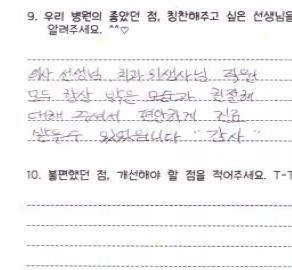 9. 우리 병원의 좋았던 점, 칭찬해주고 싶은 선생님을
알려주세요. ^^♡
의사 선생님 치과위생사님 직원
모두 항상 밝은 모습과 친절해
대해 주셔서 편안하게 진료
받을수 있었습니다 "감사"
10. 불편했던 점, 개선해야 할 점을 적어주세요. T-T